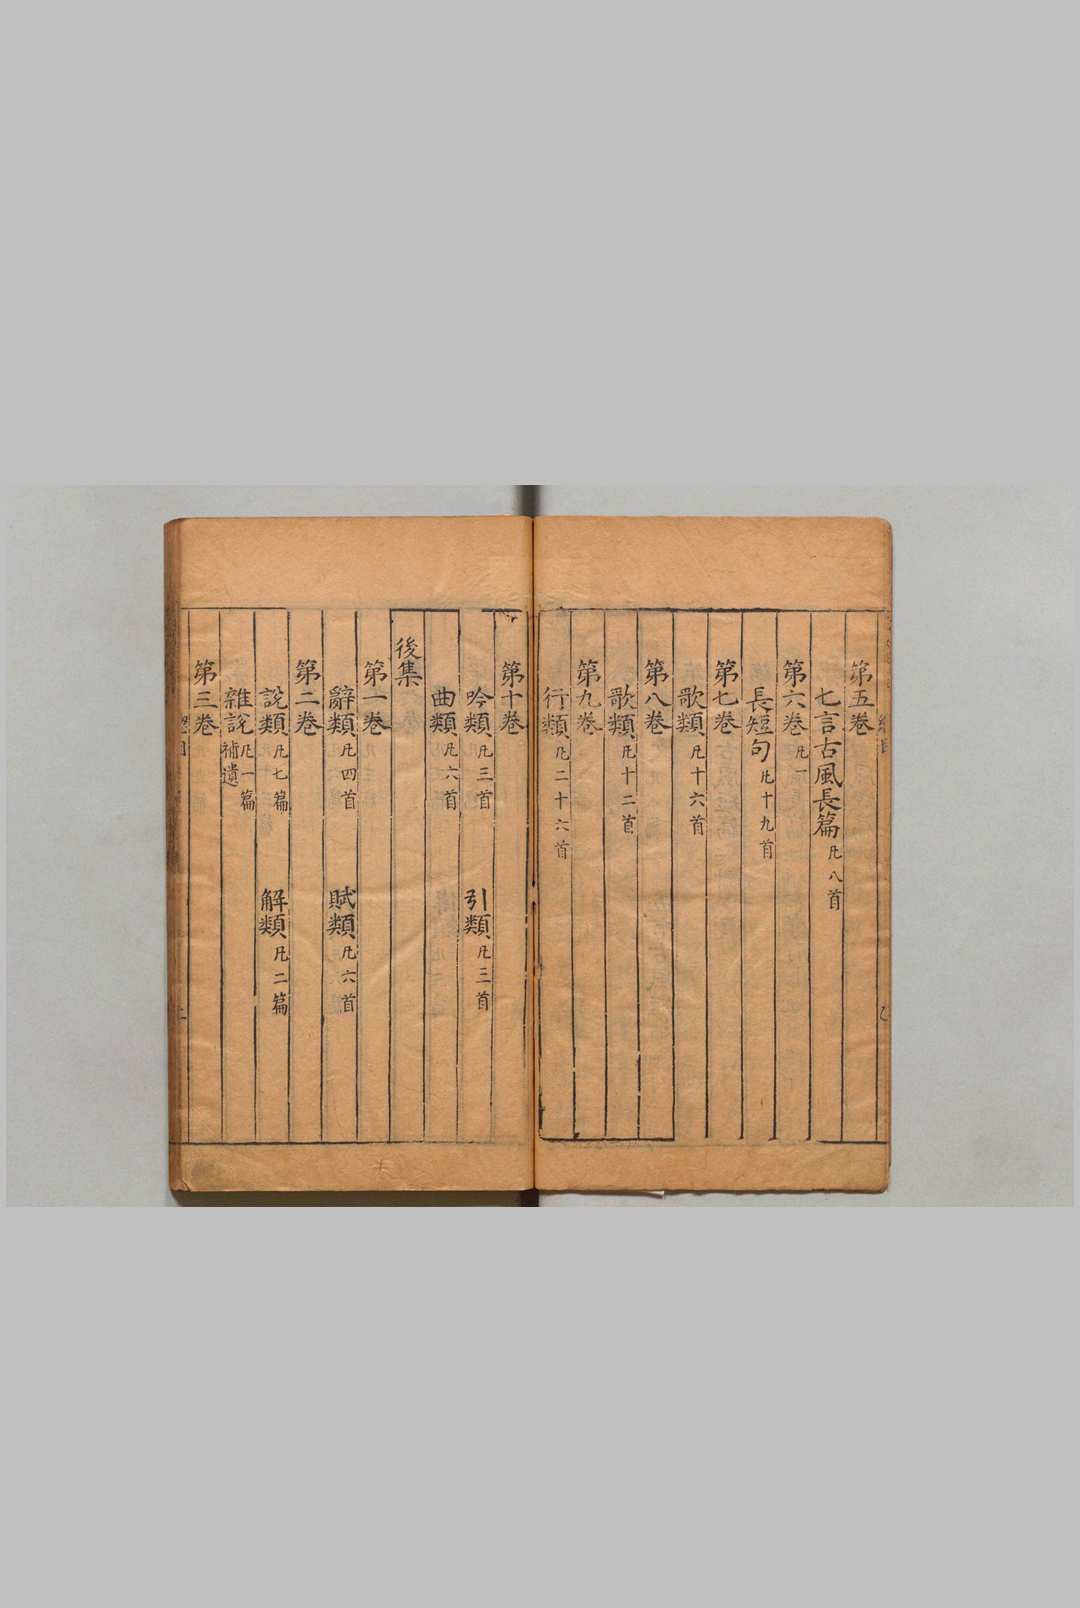 第五卷
七言古風長篇凡八首
第六卷凡一
長短句凡十九首
第七卷
歌類凡十六首
第八卷
歌類凡十二首
第九卷
行類凡二十六首
第十卷
吟類凡三首 引類凡三首
曲類凡六首
後集
第一卷
辭類凡四首 賦類凡六首
第二卷
説類凡七篇 解類凡二篇
雜説補遺凡一篇
第三卷